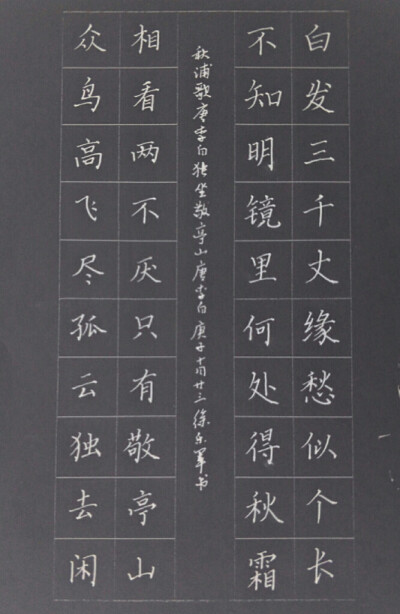 白发三千丈缘愁似个长
不知明镜里何处得秋霜
众鸟高飞尽孤云独去闲
相看两不厌只有敬亭山
秋浦歌唐李白独坐敬亭山唐李白庚子十月廿三徐军书